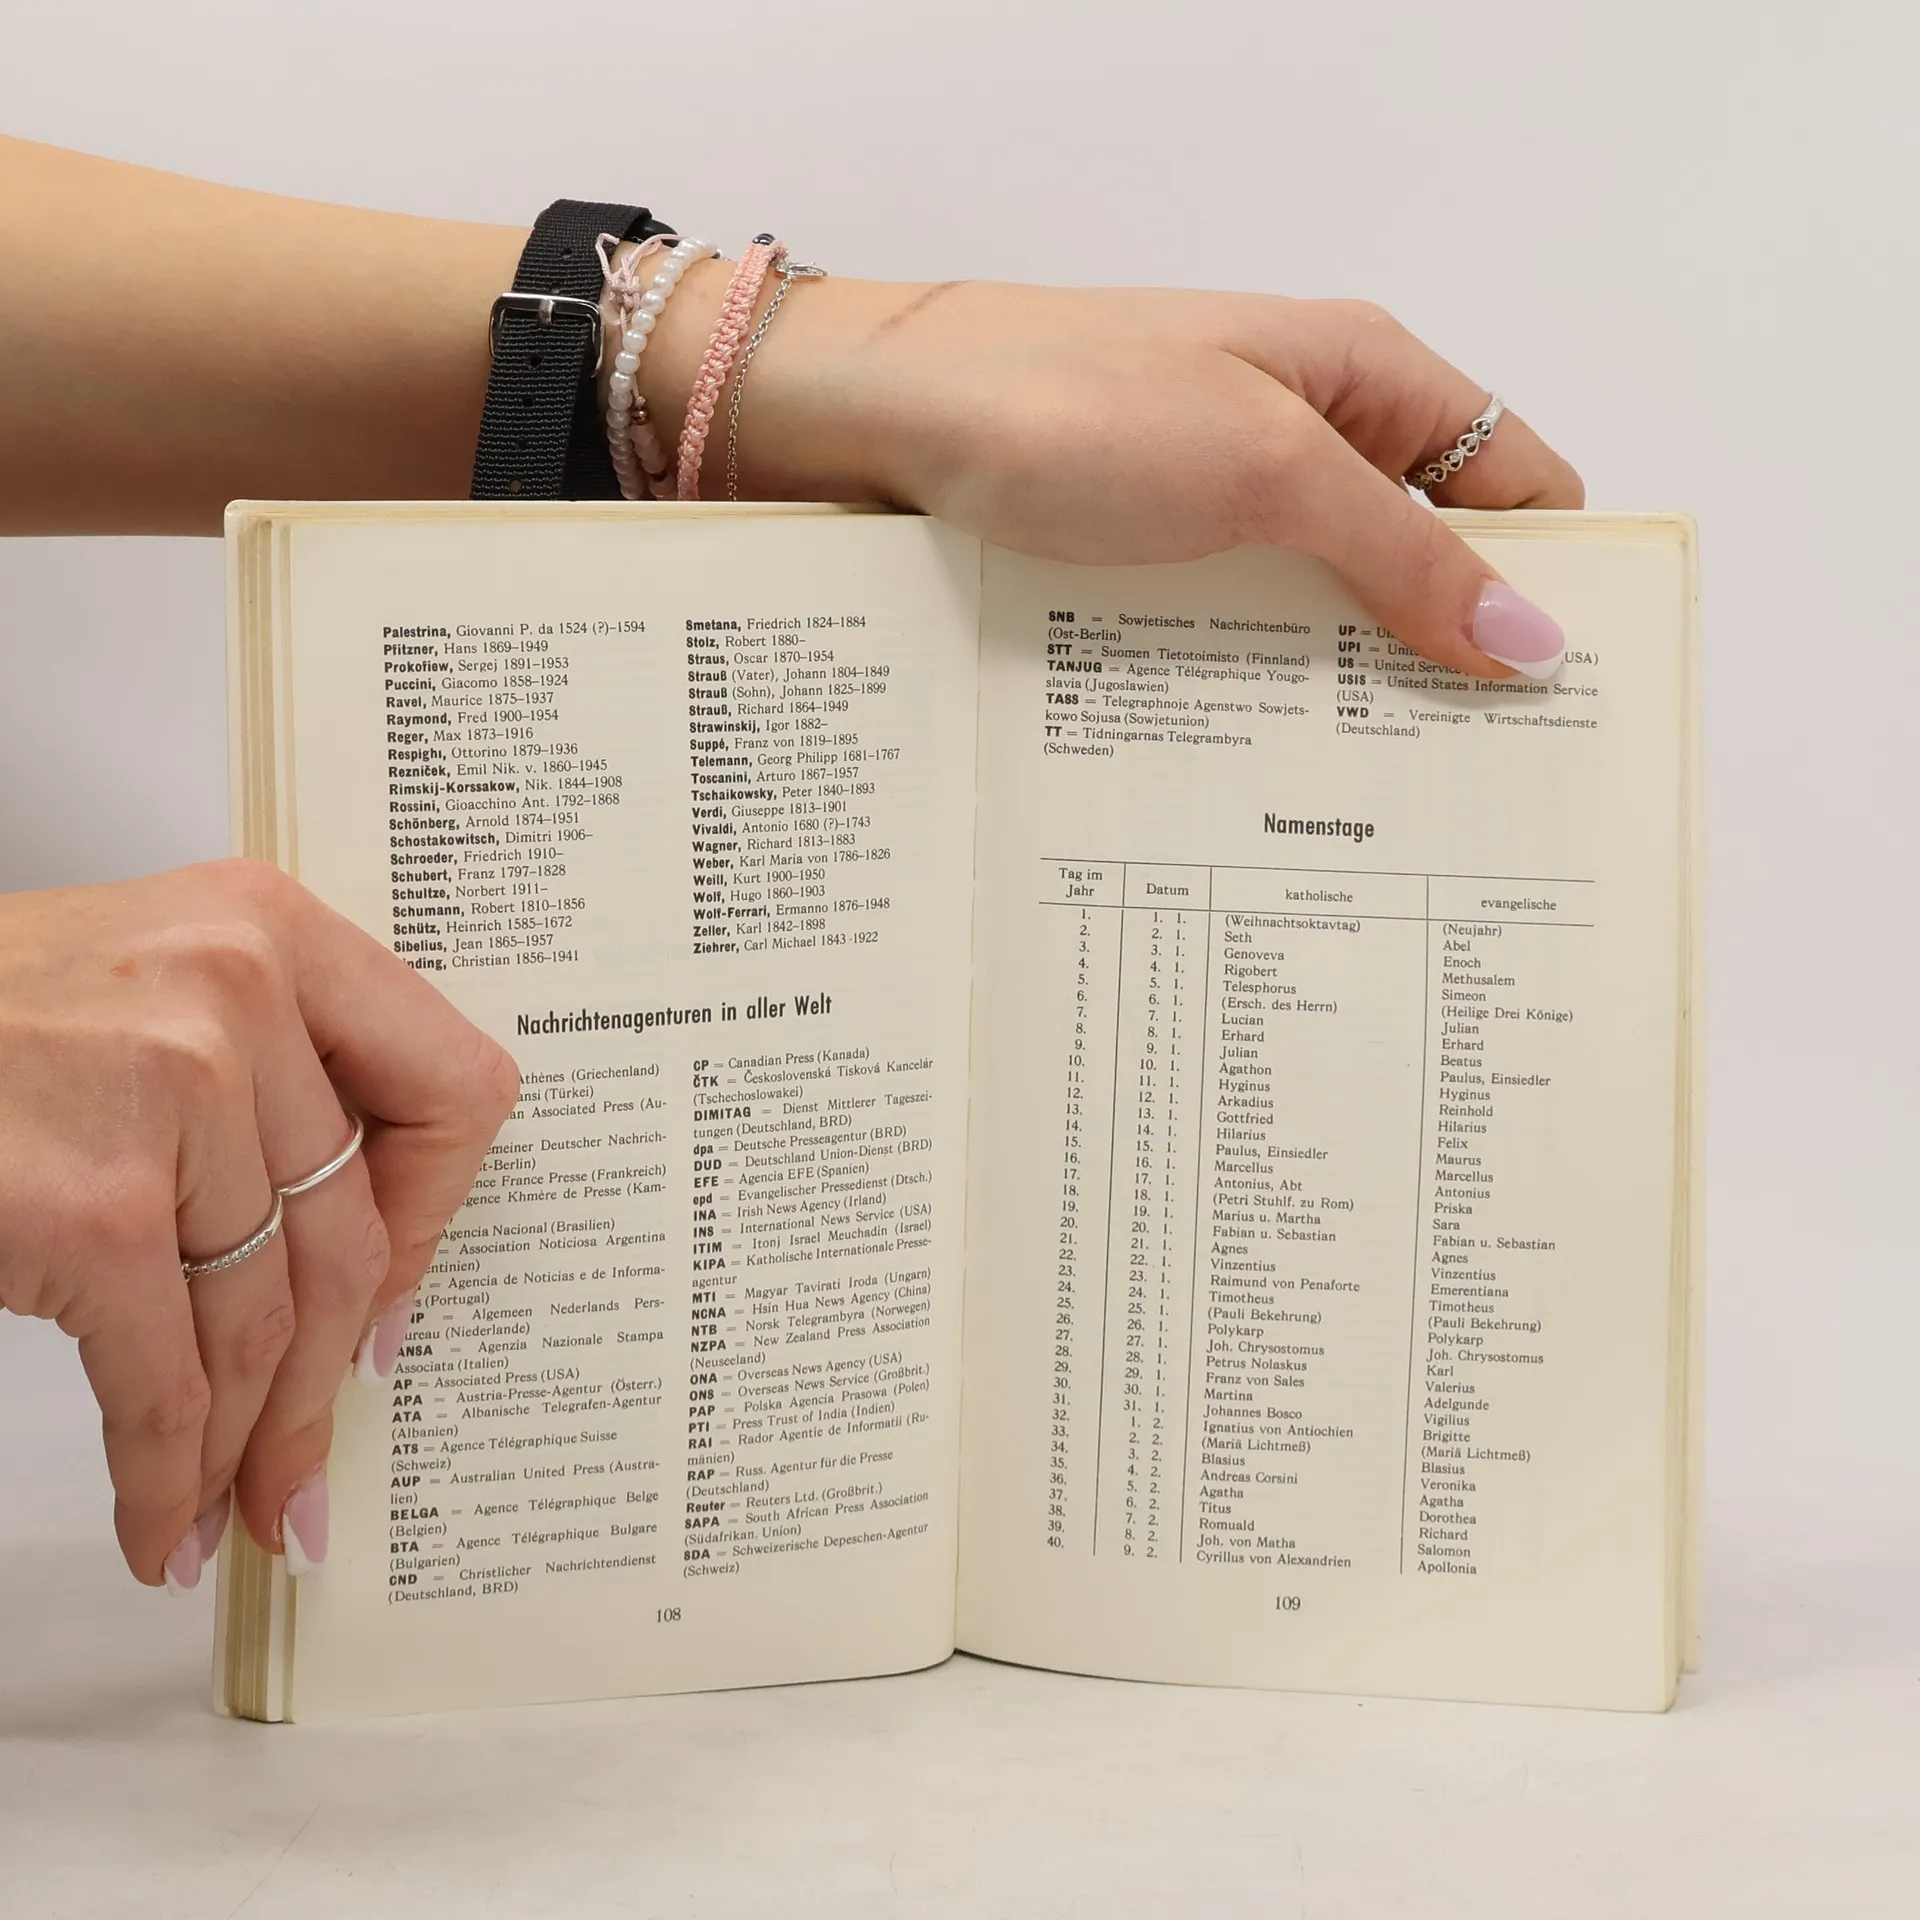 Palestrina, Giovanni P. da 1524 (?)–1594
Pfitzner, Hans 1869–1949
Prokofiew, Sergej 1891–1953
Puccini, Giacomo 1858–1924
Ravel, Maurice 1875–1937
Raymond, Fred 1900–1954
Reger, Max 1873–1916
Respighi, Ottorino 1879–1936
Rezniček, Emil Nik. v. 1860–1945
Rimskij-Korssakow, Nik. 1844–1908
Rossini, Gioacchino Ant. 1792–1868
Schönberg, Arnold 1874–1951
Schostakowitsch, Dimitri 1906–
Schroeder, Friedrich 1910–
Schubert, Franz 1797–1828
Schultze, Norbert 1911–
Schumann, Robert 1810–1856
Schütz, Heinrich 1585–1672
Sibelius, Jean 1865–1957
nding, Christian 1856–1941
Smetana, Friedrich 1824–1884
Stolz, Robert 1880–
Straus, Oscar 1870–1954
Strauß (Vater), Johann 1804–1849
Strauß (Sohn), Johann 1825–1899
Strauß, Richard 1864–1949
Strawinskij, Igor 1882–
Suppé, Franz von 1819–1895
Telemann, Georg Philipp 1681–1767
Toscanini, Arturo 1867–1957
Tschaikowsky, Peter 1840–1893
Verdi, Giuseppe 1813–1901
Vivaldi, Antonio 1680 (?)–1743
Wagner, Richard 1813–1883
Weber, Karl Maria von 1786–1826
Weill, Kurt 1900–1950
Wolf, Hugo 1860–1903
Wolf-Ferrari, Ermanno 1876–1948
Zeller, Karl 1842–1898
Ziehrer, Carl Michael 1843-1922
Nachrichtenagenturen in aller Welt
Athènes (Griechenland)
ansi (Türkei)
an Associated Press (Au-
emeiner Deutscher Nachrich-
t-Berlin)
nce France Presse (Frankreich)
gence Khmère de Presse (Kam-
)
Agencia Nacional (Brasilien)
= Association Noticiosa Argentina
entinien)
= Agencia de Noticias e de Informa-
s (Portugal)
NP = Algemeen Nederlands Pers-
ureau (Niederlande)
ANSA = Agenzia Nazionale Stampa
Associata (Italien)
AP = Associated Press (USA)
APA = Austria-Presse-Agentur (Österr.)
ATA = Albanische Telegrafen-Agentur
(Albanien)
ATS = Agence Télégraphique Suisse
(Schweiz)
AUP = Australian United Press (Austra-
lien)
BELGA = Agence Télégraphique Belge
(Belgien)
BTA = Agence Télégraphique Bulgare
(Bulgarien)
CND = Christlicher Nachrichtendienst
(Deutschland, BRD)
CP = Canadian Press (Kanada)
ČTK = Československá Tisková Kancelár
(Tschechoslowakei)
DIMITAG = Dienst Mittlerer Tageszei-
tungen (Deutschland, BRD)
dpa = Deutsche Presseagentur (BRD)
DUD = Deutschland Union-Dienst (BRD)
EFE = Agencia EFE (Spanien)
epd = Evangelischer Pressedienst (Dtsch.)
INA = Irish News Agency (Irland)
INS = International News Service (USA)
ITIM = Itonj Israel Meuchadin (Israel)
KIPA = Katholische Internationale Presse-
agentur
MTI = Magyar Tavirati Iroda (Ungarn)
NCNA = Hsin Hua News Agency (China)
NTB = Norsk Telegrambyra (Norwegen)
NZPA = New Zealand Press Association
(Neuseeland)
ONA = Overseas News Agency (USA)
ONS = Overseas News Service (Großbrit.)
PAP = Polska Agencia Prasowa (Polen)
PTI = Press Trust of India (Indien)
RAI = Rador Agentie de Informatii (Ru-
mänien)
RAP = Russ. Agentur für die Presse
(Deutschland)
Reuter = Reuters Ltd. (Großbrit.)
SAPA = South African Press Association
(Südafrikan. Union)
SDA = Schweizerische Depeschen-Agentur
(Schweiz)
108
SNB = Sowjetisches Nachrichtenbüro
(Ost-Berlin)
STT = Suomen Tietotoimisto (Finnland)
TANJUG = Agence Télégraphique Yougo-
slavia (Jugoslawien)
TASS = Telegraphnoje Agenstwo Sowjets-
kowo Sojusa (Sowjetunion)
TT = Tidningarnas Telegrambyra
(Schweden)
UP =
UPI = USA)
US = United
USIS = United States Information Service
(USA)
VWD = Vereinigte Wirtschaftsdienste
(Deutschland)
Namenstage
Tag im Jahr Datum katholische evangelische
1. 1. 1. (Weihnachtsoktavtag) (Neujahr)
2. 2. 1. Seth Abel
3. 3. 1. Genoveva Enoch
4. 4. 1. Rigobert Methusalem
5. 5. 1. Telesphorus Simeon
6. 6. 1. (Ersch. des Herrn) (Heilige Drei Könige)
7. 7. 1. Lucian Julian
8. 8. 1. Erhard Erhard
9. 9. 1. Julian Beatus
10. 10. 1. Agathon Paulus, Einsiedler
11. 11. 1. Hyginus Hyginus
12. 12. 1. Arkadius Reinhold
13. 13. 1. Gottfried Hilarius
14. 14. 1. Hilarius Felix
15. 15. 1. Paulus, Einsiedler Maurus
16. 16. 1. Marcellus Marcellus
17. 17. 1. Antonius, Abt Antonius
18. 18. 1. (Petri Stuhlf. zu Rom) Priska
19. 19. 1. Marius u. Martha Sara
20. 20. 1. Fabian u. Sebastian Fabian u. Sebastian
21. 21. 1. Agnes Agnes
22. 22. 1. Vinzentius Vinzentius
23. 23. 1. Raimund von Penaforte Emerentiana
24. 24. 1. Timotheus Timotheus
25. 25. 1. (Pauli Bekehrung) (Pauli Bekehrung)
26. 26. 1. Polykarp Polykarp
27. 27. 1. Joh. Chrysostomus Joh. Chrysostomus
28. 28. 1. Petrus Nolaskus Karl
29. 29. 1. Franz von Sales Valerius
30. 30. 1. Martina Adelgunde
31. 31. 1. Johannes Bosco Vigilius
32. 1. 2. Ignatius von Antiochien Brigitte
33. 2. 2. (Mariä Lichtmeß) (Mariä Lichtmeß)
34. 3. 2. Blasius Blasius
35. 4. 2. Andreas Corsini Veronika
36. 5. 2. Agatha Agatha
37. 6. 2. Titus Dorothea
38. 7. 2. Romuald Richard
39. 8. 2. Joh. von Matha Salomon
40. 9. 2. Cyrillus von Alexandrien Apollonia
109